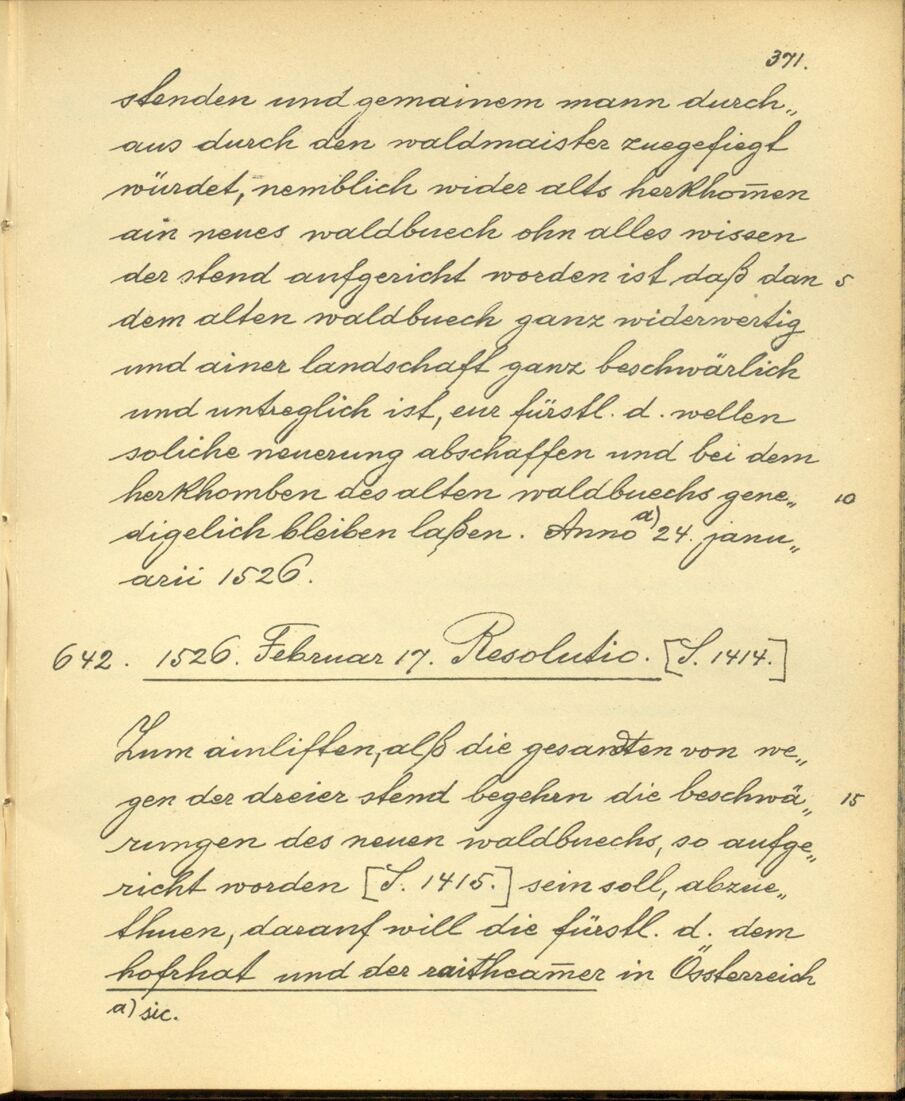 371.
stenden und gemainem mann durch„
aus durch den waldmaister zuegefiegt
würdet, nemblich wider alts herkhom̅en
ain neues waldbuech ohn alles wissen
der stend aufgericht worden ist, daß dan 5
dem alten waldbuech ganz widerwertig
und ainer landschaft ganz beschwärlich
und untreglich ist, eur fürstl. d. wellen
soliche neuerung abschaffen und bei dem
herkhomben des alten waldbuechs gene„ 10
digelich bleiben laßen. Anno a) 24. janu„
arii 1526.
642. 1526. Februar 17. Resolutio. [S. 1414.]
Zum ainliften, alß die gesandten von we„
gen der dreier stend begehrn die beschwä„ 15
rungen des neuen waldbuechs, so aufge„
richt worden [S. 1415.] sein soll, abzue„
thuen, darauf will die fürstl. d. dem
hofrhat und der raitheam̅er in Össterreich
a) sic.